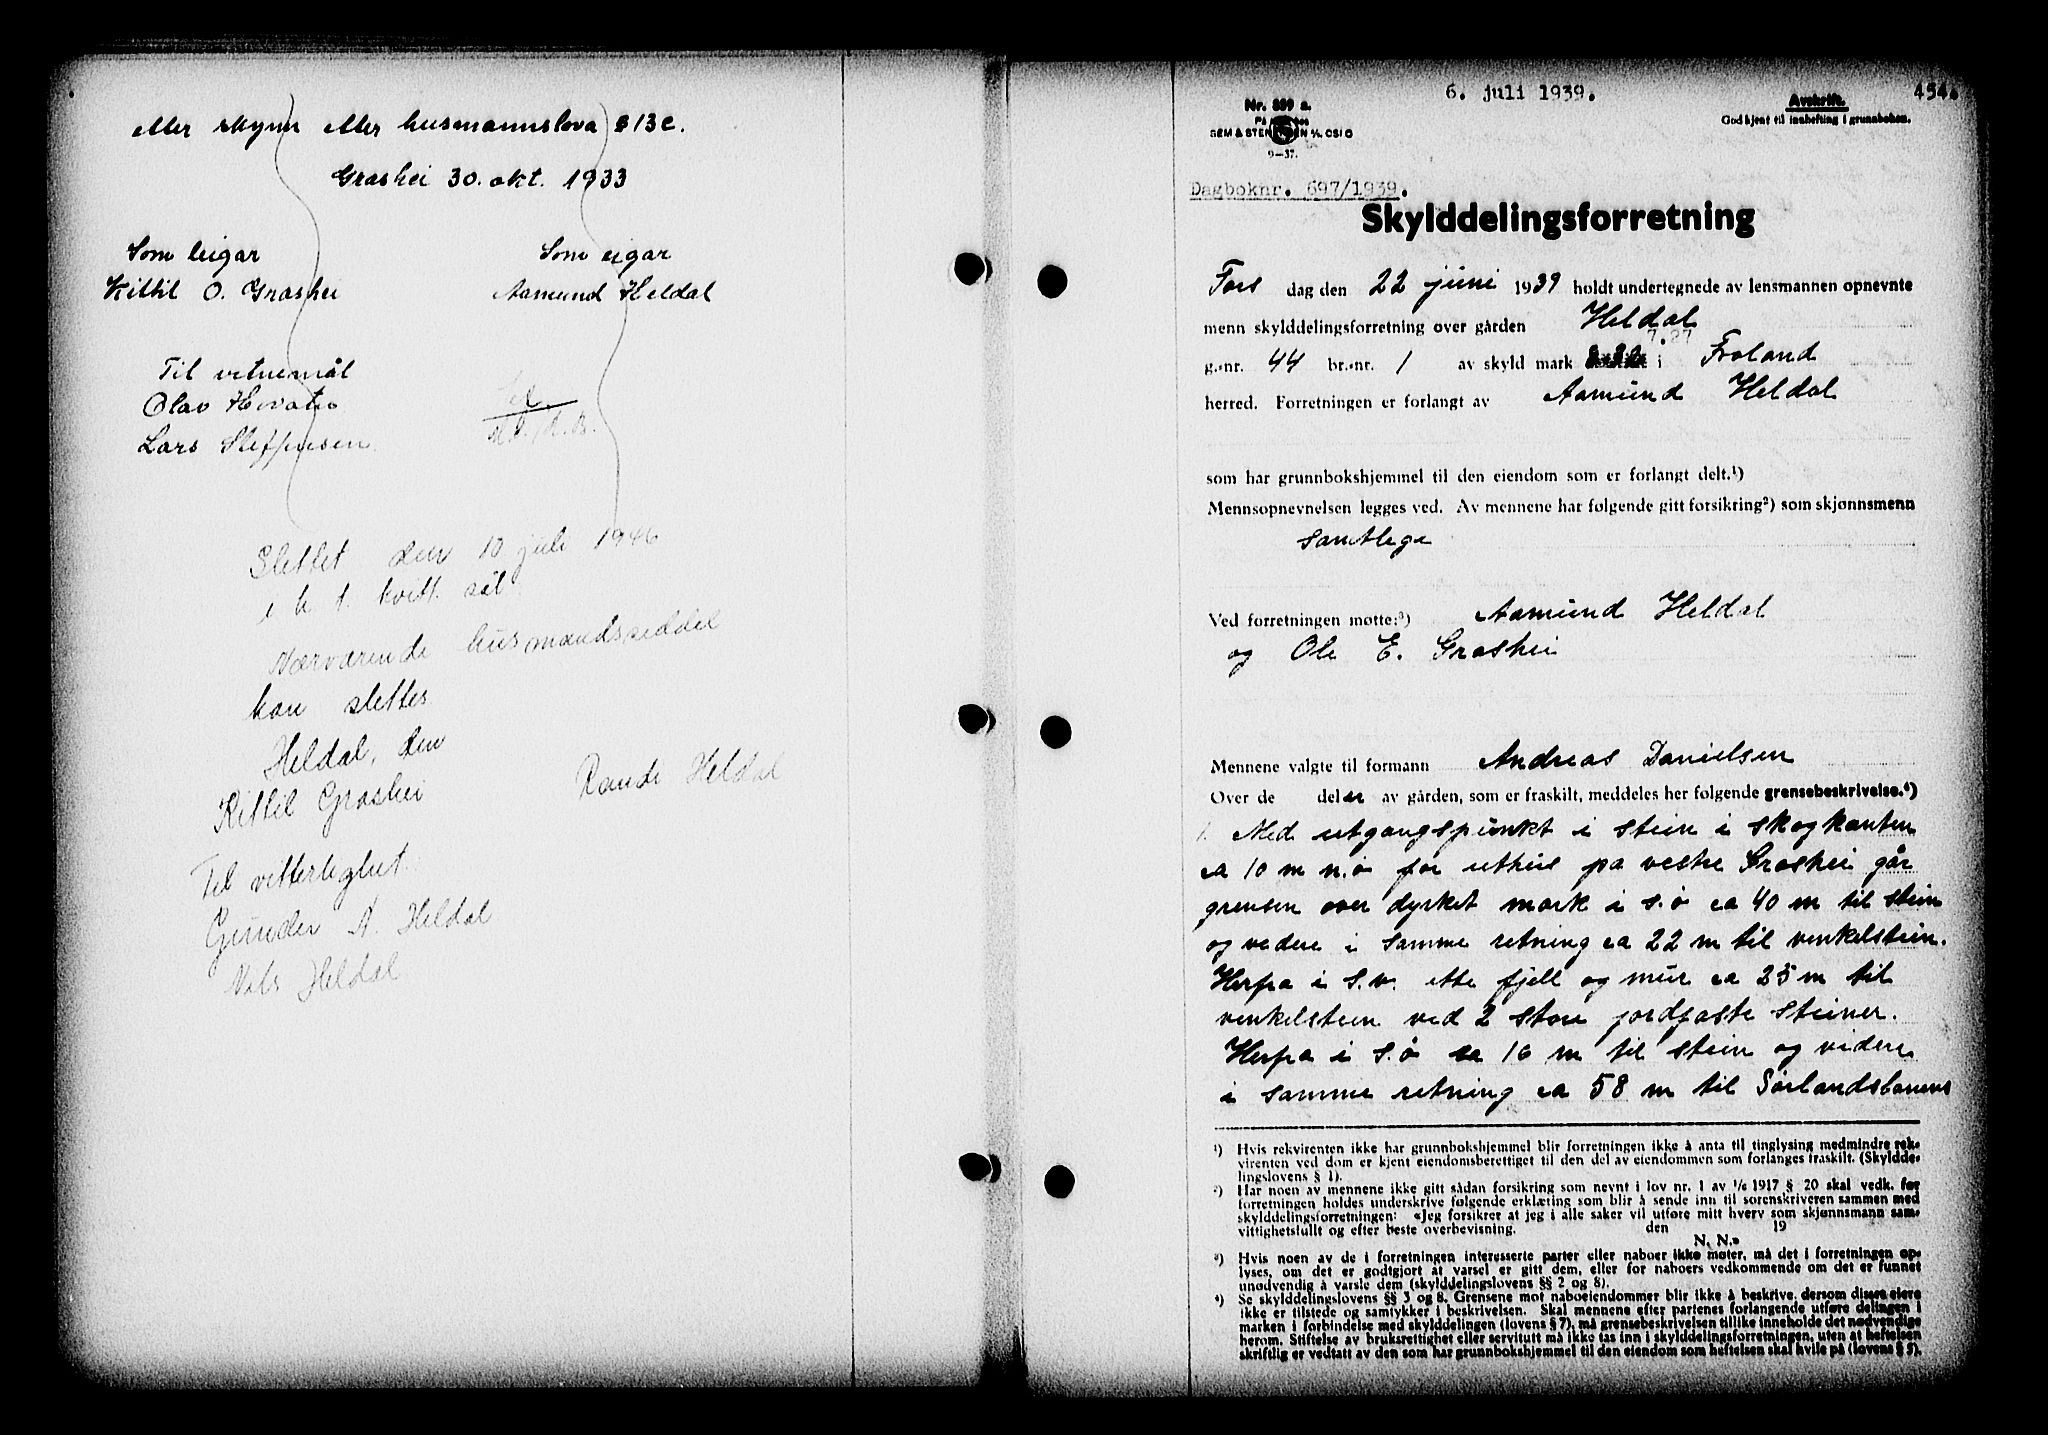 eller skynn etter husmannslova § 13 c.
Grashei 30. okt. 1933
Som leigar
Som eigar
Kittil O. Grashei
Aamund Heldal
Til vitnemål
Olav
Lars Steffensen
Slettet den 10 juli 1946
i h. t. kvitt. sål.
Nærværende husmandsseddel
kan slettes
Heldal, den
Kittil Grashei
Randi Heldal
Til vitterlighet:
Gunder A. Heldal
Nils Heldal
6. juli 1939.
454.
Nr. 899 a.
SEM & STENERSEN A/S. OSLO
9—37.
Avskrift.
Godkjent til innhefting i grunnboken.
Dagboknr. 697/1939.
Skylddelingsforretning
Tors dag den 22 juni 1939 holdt undertegnede av lensmannen opnevnte
menn skylddelingsforretning over gården Heldal
g.-nr. 44 br.-nr. 1 av skyld mark 7.27 i Froland
herred. Forretningen er forlangt av Aamund Heldal
som har grunnbokshjemmel til den eiendom som er forlangt delt.¹)
Mennsopnevnelsen legges ved. Av mennene har følgende gitt forsikring²) som skjønnsmenn
samtlege
Ved forretningen møtte:³) Aamund Heldal
og Ole E. Grashei
Mennene valgte til formann Andreas Danielsen
Over de deler av gården, som er fraskilt, meddeles her følgende grensebeskrivelse.⁴)
1. Med utgangspunkt i stein i skogkanten
ca 10 m n.ø for uthus på vestre Grashei går
grensen over dyrket mark i s.ø ca 40 m til stein
og videre i samme retning ca 22 m til venkelstein.
Herfra i s.v. ette fjell og mur ca 25 m til
venkelstein ved 2 store jordfaste steiner.
Herfra i s.ø ca 16 m til stein og videre
i samme retning ca 58 m til Sørlandsbanens
¹) Hvis rekvirenten ikke har grunnbokshjemmel blir forretningen ikke å anta til tinglysing medmindre rek-
virenten ved dom er kjent eiendomsberettiget til den del av eiendommen som forlanges fraskilt. (Skyldde-
lingslovens § 1).
²) Har noen av mennene ikke gitt sådan forsikring som nevnt i lov nr. 1 av 1/6 1917 § 20 skal vedk. før
forretningen holdes underskrive følgende erklæring som blir å sende inn til sorenskriveren sammen med
skylddelingsforretningen: «Jeg forsikrer at jeg i alle saker vil utføre mitt hverv som skjønnsmann sam-
vittighetsfullt og efter beste overbevisning. den 19
N. N.»
³) Hvis noen av de i forretningen interesserte parter eller naboer ikke møter, må det i forretningen op-
lyses, om det er godtgjort at varsel er gitt dem, eller for naboers vedkommende om det er funnet
unødvendig å varsle dem (skylddelingslovens §§ 2 og 8).
⁴) Se skylddelingslovens §§ 3 og 8. Grensene mot naboeiendommer blir ikke å beskrive, dersom disses eiere
ikke er tilstede og samtykker i beskrivelsen. Skal mennene efter partenes forlangende utføre delingen i
marken i forbindelse med skylddelingen (lovens § 7), må grensebeskrivelsen tillike inneholde det nødvendige
herom. Stiftelse av bruksrettighet eller servitutt må ikke tas inn i skylddelingsforretningen, uten at heftelsen
skriftlig er vedtatt av den som har grunnbokshjemmel til den eiendom som heftelsen skal hvile på (lovens § 5).